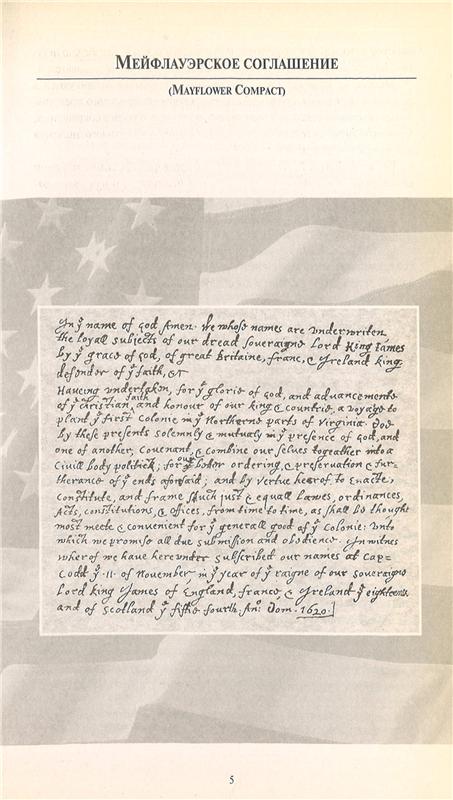 МЕЙФЛАУЭРСКОЕ СОГЛАШЕНИЕ
(MAYFLOWER COMPACT)
In yͤ name of god Amen. We whose names are underwriten,
the loyall subjects of our dread soveraigne Lord King James
by yͤ grace of god, of great Britaine, franc, & Ireland king,
defender of yͤ faith, &c
Haveing undertaken, for yͤ glorie of god, and advancemente
of yͤ christian faith and honour of our king & countrie, a voyage to
plant yͤ first colonie in yͤ Northerne parts of Virginia. Doe
by these presents solemnly & mutualy in yͤ presence of god, and
one of another, covenant, & combine our selves togeather into a
Civill body politick; for our better ordering, & preservation & fur=
therance of yͤ ends aforesaid; and by vertue hearof to enacte,
constitute, and frame such just & equall Lawes, ordinances,
Acts, constitutions, & offices, from time to time, as shall be thought
most meete & convenient for yͤ generall good of yͤ Colonie: unto
which we promise all due submission and obedience. In witnes
wherof we have hereunder subscribed our names at Cap=
Codd yͤ .11. of November in yͤ year of yͤ raigne of our soveraigne
Lord king James of England, france, & Ireland yͤ eighteenth
and of Scotland yͤ fiftie fourth. Anᵒ: Dom. 1620.]
5